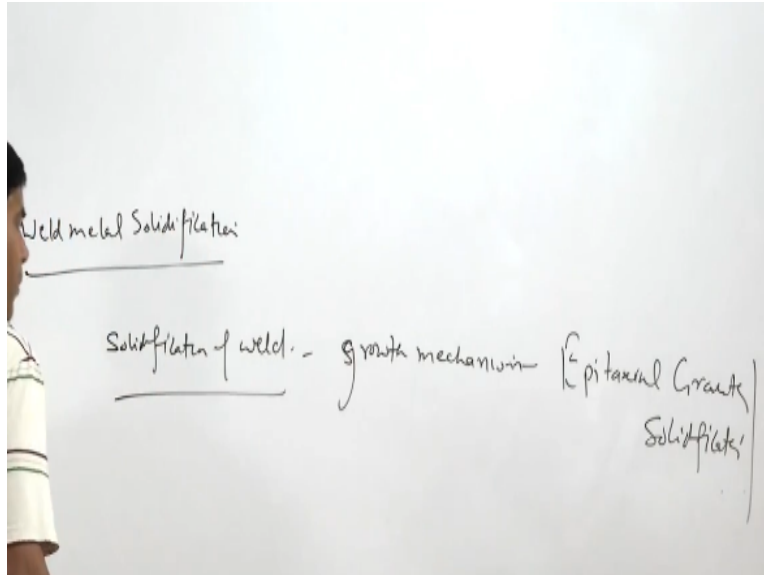 Weld metal Solidification
Solidification of weld. - growth mechanism - Epitaxial Growth
Solidification